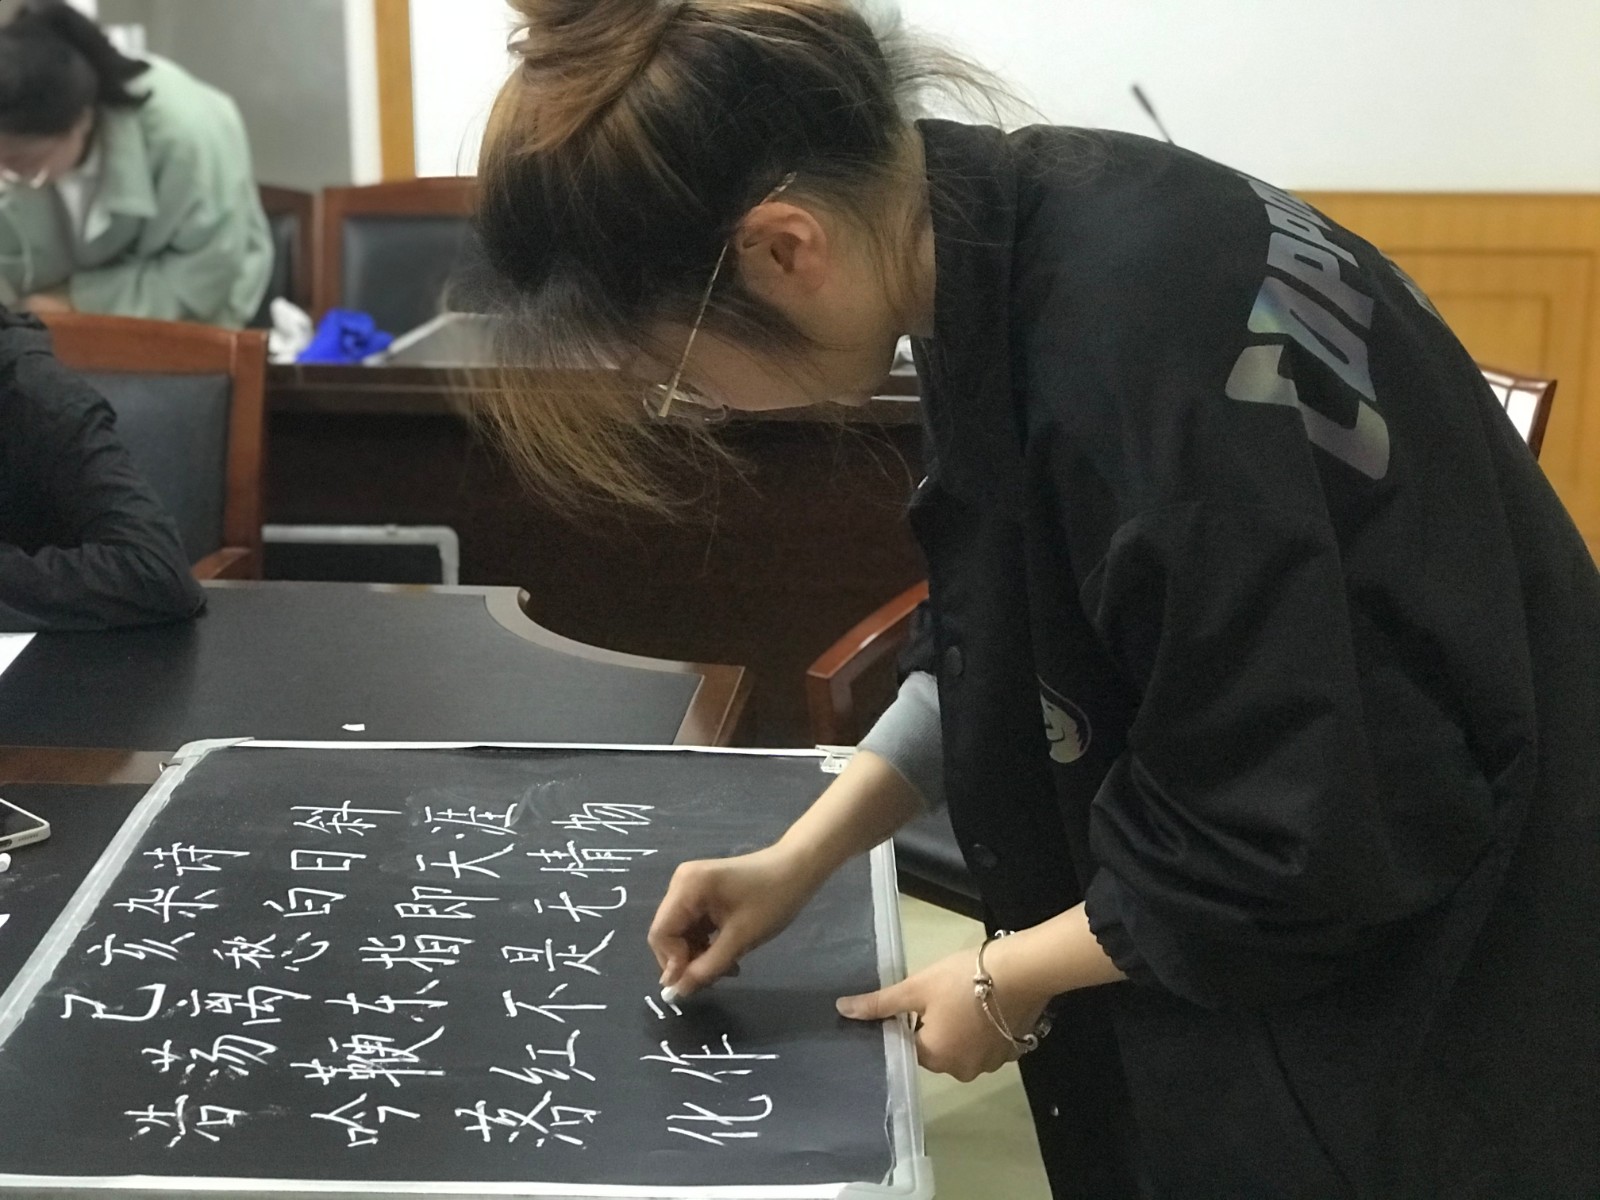 己亥杂诗
浩荡离愁白日斜
吟鞭东指即天涯
落红不是无情物
化作